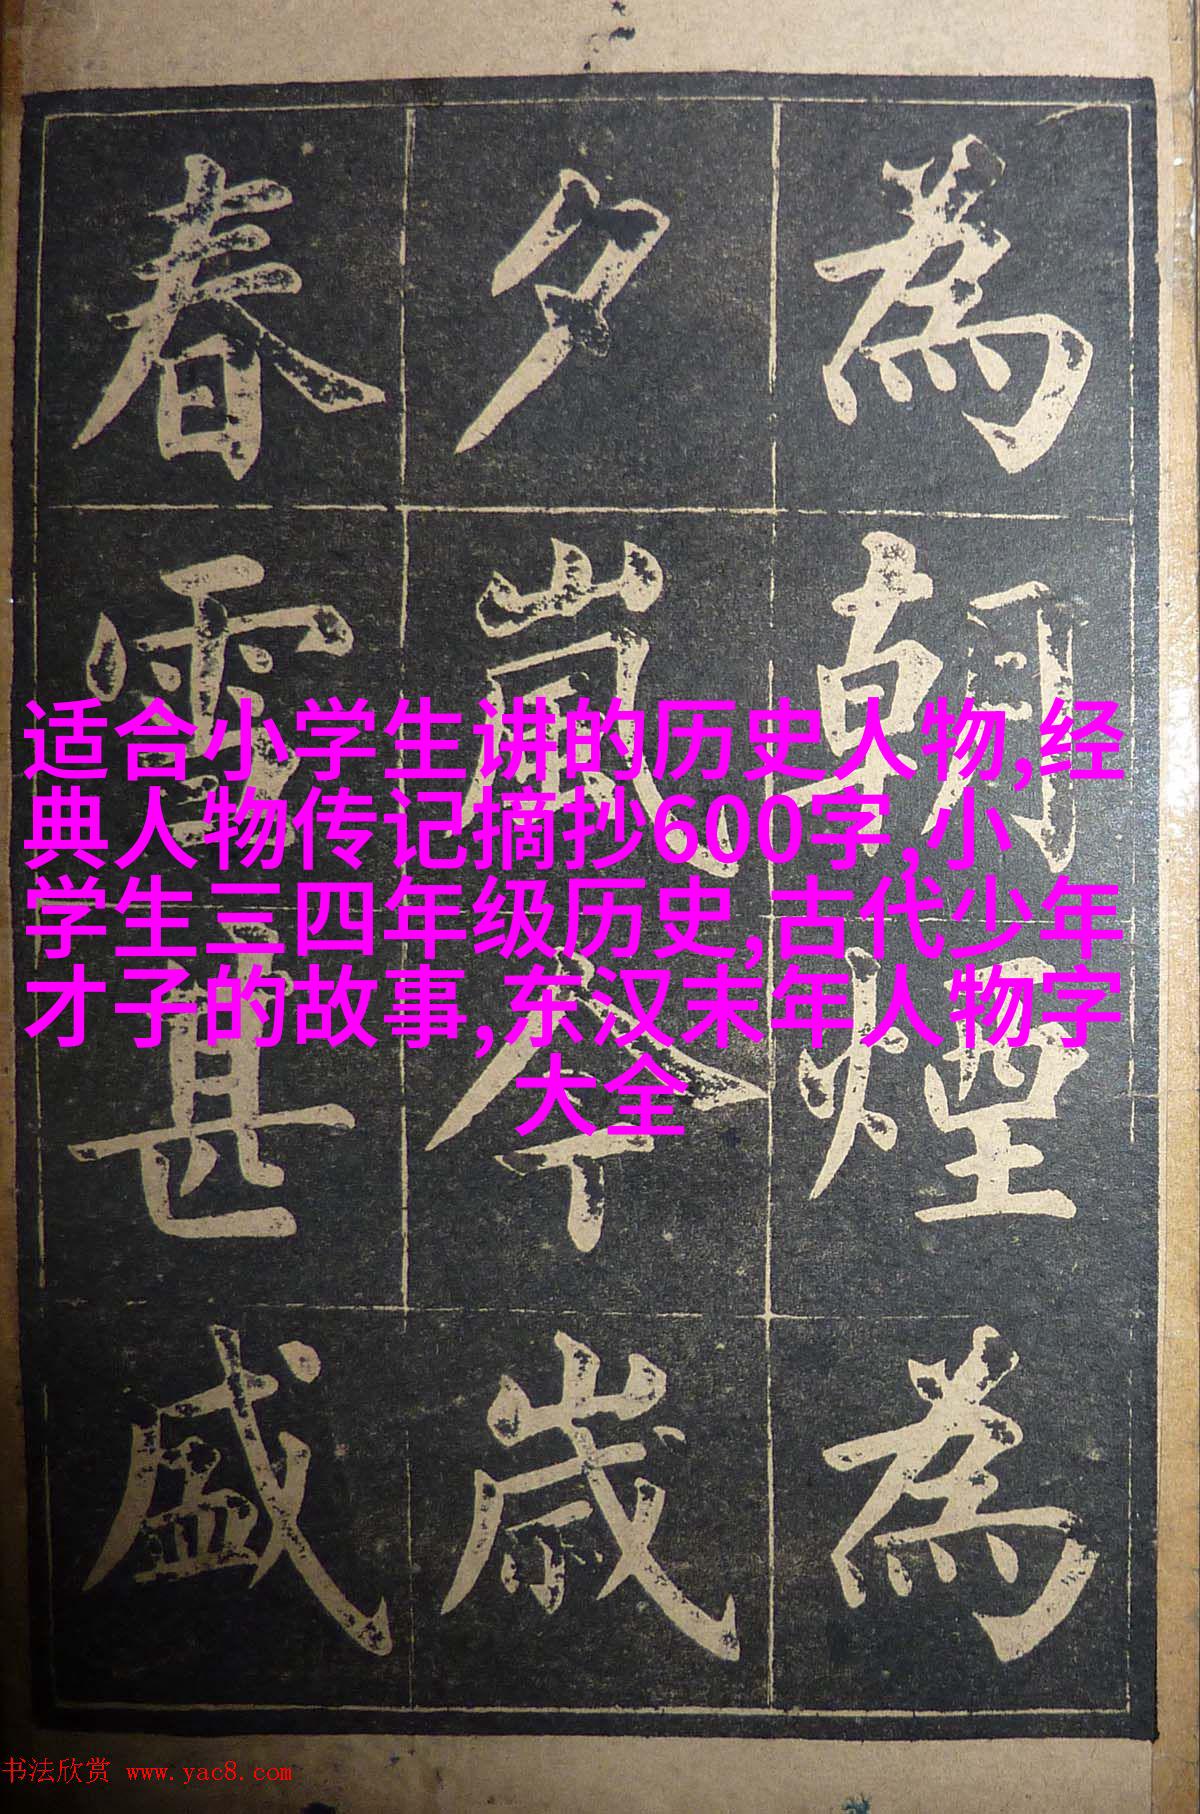 為朝煙為
夕嵐今歳
春雪甚盛
适合小学生讲的历史人物,经
典人物传记摘抄600字,小
学生三四年级历史,古代少年
才子的故事,东汉末年人物字
大全
书法欣赏 www.yac8.com